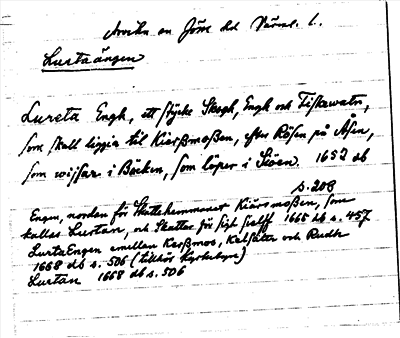 Arvika en Jösse hd Värml. l.
Lurtaängen
Lureta Engh, ett stycke Skogh, Engh och Fiskewatn,
som skall liggia til Kiärßmoßen, efter Rösen på Åsen,
som wissar i Bäcken, som löper i Siöen. 1652 db
s. 208
Engen, norden för Skattehemmanet Kiärsmoßen, som
kallas Lurtan, och Skattar för sigh sielff 1665 db s. 457
LurtaEngen emellan Karßmos, Kalsäter och Rudh
1668 db s. 506 (tillhör Kyrkebyn)
Lurtan 1668 db s. 506